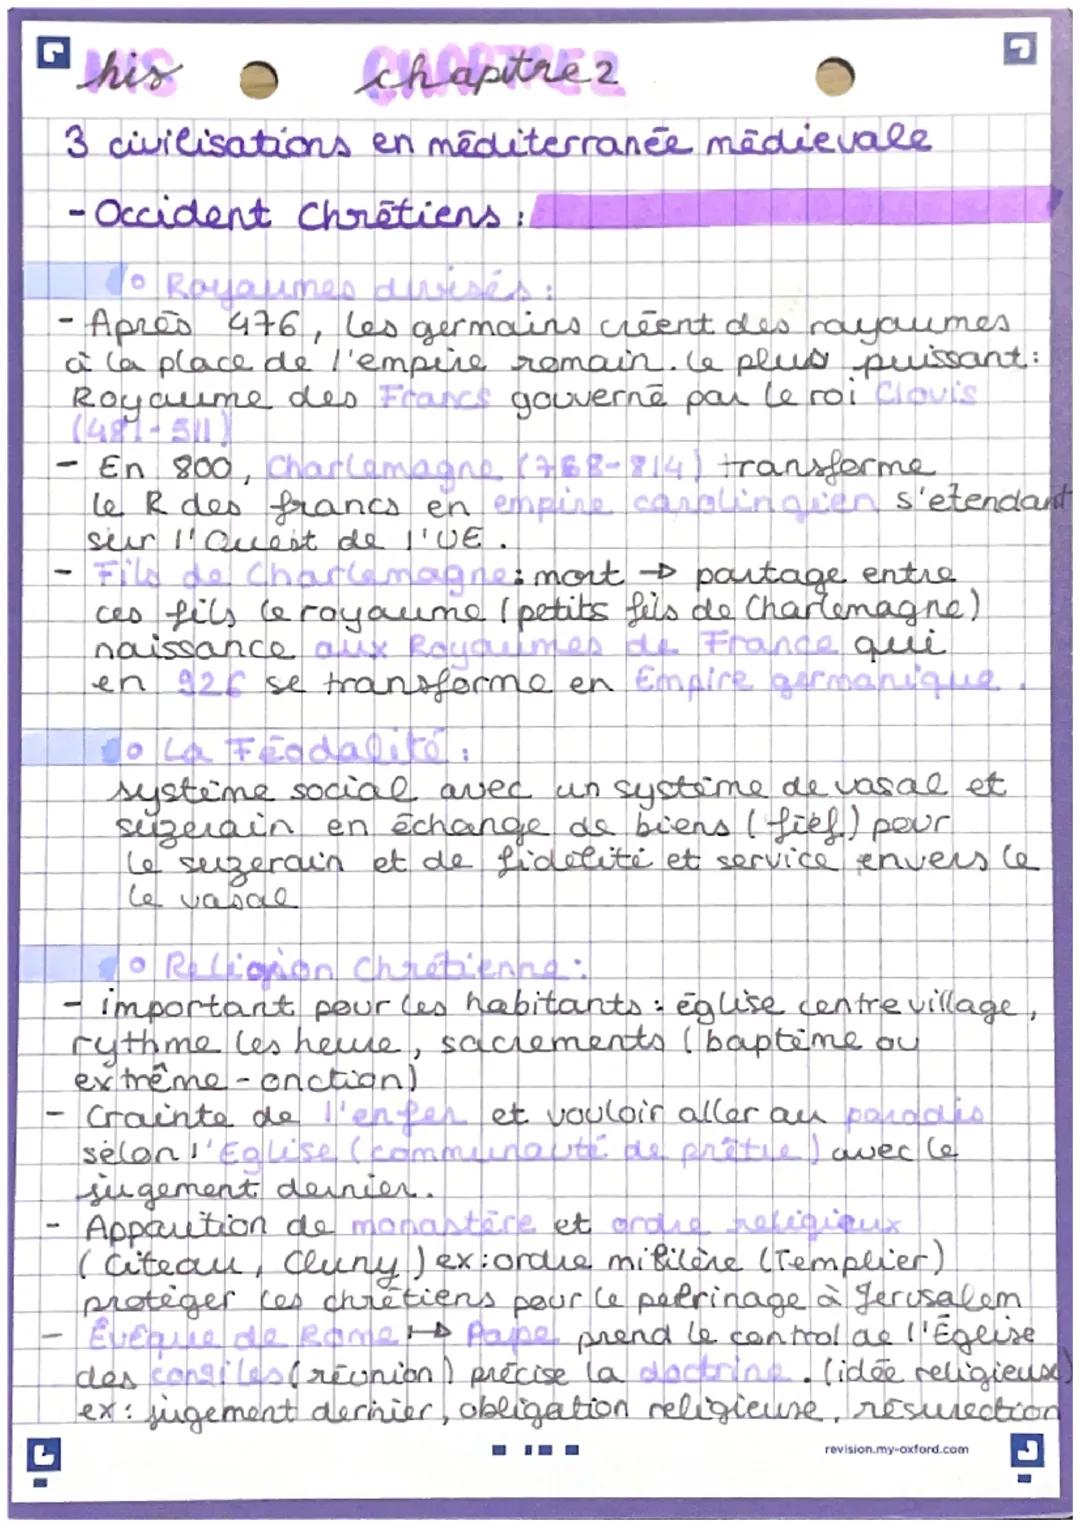 his chapitre 2
3 civilisations en méditerranée médievale
- Occident Chrétiens :
° Royaumes divisés :
- Après 476, les germains créent des royaumes
à la place de l'empire romain. le plus puissant :
Royaume des Francs gouverné par le roi Clovis
(481-511)
- En 800, Charlemagne (768-814) transforme
le R des francs en empire carolingien s'etendant
sur l'Ouest de l'UE.
- Fils de Charlemagne : mort → partage entre
ces fils le royaume (petits fils de Charlemagne)
naissance aux Royaumes de France qui
en 926 se transforme en Empire germanique.
° La Féodalité :
système social avec un système de vasal et
suzerain en échange de biens (fief) pour
le suzerain et de fidélité et service envers le
le vasal
° Religion Chrétienne :
- important pour les habitants : église centre village,
rythme les heure, sacrements (baptême ou
extrême-onction)
- Crainte de l'enfer et vouloir aller au paradis
sélon l'Eglise (communauté de prêtre) avec le
jugement dernier.
- Apparition de monastère et ordre religieux
(Citeau, Cluny) ex : ordre militère (Templier)
protéger les chrétiens pour le pelrinage à Jerusalem
- Evêque de Rome → Pape prend le control de l'Église
des consiles (réunion) précise la doctrine. (idée religieuse)
ex : jugement dernier, obligation religieuse, résurection
revision.my-oxford.com